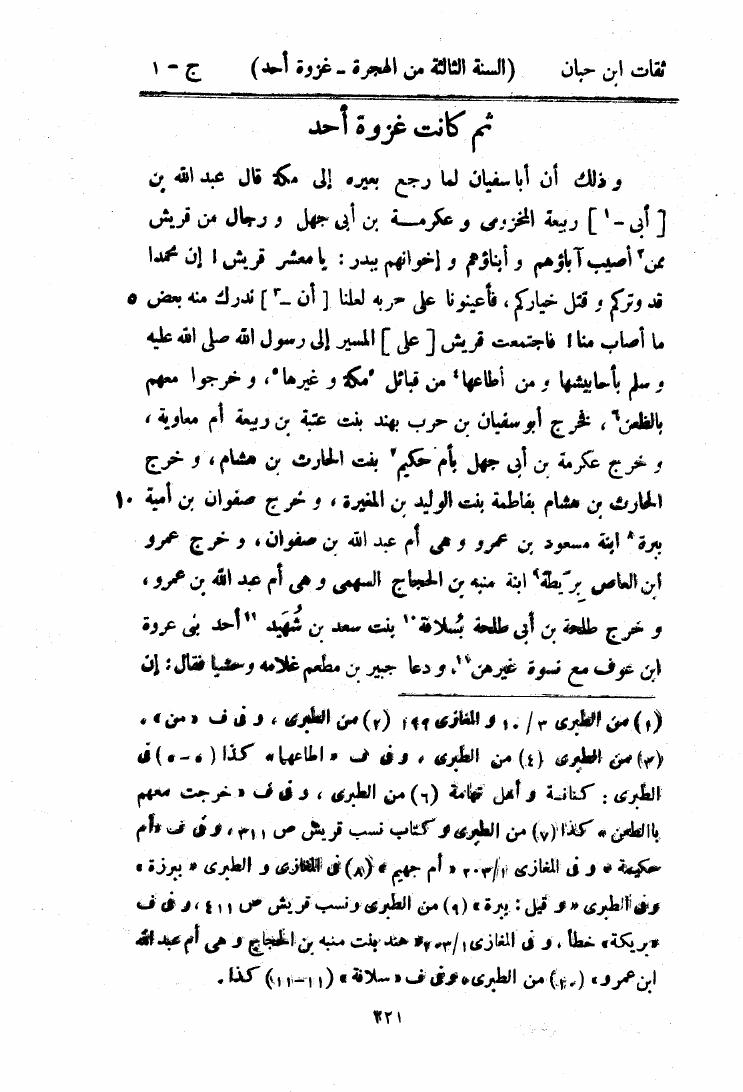 ثقات ابن حبان (السنة الثالثة من الهجرة - غزوة أحد) ج - ١
ثم كانت غزوة أحد
و ذلك أن أبا سفيان لما رجع بعيره إلى مكة قال عبد الله بن
[ أبي -١ ] ربيعة المخزومى و عكرمة بن أبى جهل و رجال من قريش
ممن٢ أصيب آباؤهم و أبناؤهم و إخوانهم ببدر : يا معشر قريش ! إن محمدا
قد وتركم و قتل خياركم، فأعينونا على حربه لعلنا [ أن -٣ ] ندرك منه بعض ٥
ما أصاب منا ! فاجتمعت قريش [ على ] المسير إلى رسول الله صلى الله عليه
و سلم بأحابيشها و من أطاعها٤ من قبائل ٥مكة و غيرها٥، و خرجوا معهم
بالظعن٦، فخرج أبو سفيان بن حرب بهند بنت عتبة بن ربيعة أم معاوية ،
و خرج عكرمة بن أبى جهل بأم حكيم٧ بنت الحارث بن هشام، و خرج
الحارث بن هشام بفاطمة بنت الوليد بن المغيرة ، و خرج صفوان بن أمية ١٠
ببرة٨ ابنة مسعود بن عمرو و هى أم عبد الله بن صفوان، و خرج عمرو
ابن العاص بِرَيطة٩ ابنة منبه بن الحجاج السهمى و هى أم عبد الله بن عمرو،
و خرج طلحة بن أبى طلحة بسُلافة١٠ بنت سعد بن شُهَيد ١١أحد بنى عروة
ابن عوف مع نسوة غيرهن١١. و دعا جبير بن مطعم غلامه وحشيا فقال : إن
(١) من الطبرى ٣ / ١٠ و المغازى ١٩٩ (٢) من الطبرى ، و فى ف « من » .
(٣) من الطبرى (٤) من الطبرى ، و فى ف « اطاعهما » كذا (٥-٥) فى
الطبرى : كنانة و أهل تهامة (٦) من الطبرى ، و فى ف « خرجت معهم
باالطعن » كذا (٧) من الطبرى و كتاب نسب قريش ص ٣١١، و فى ف «أم
حكيمة » و فى المغازى ٢٠٣/١ « أم جهيم » (٨) فى المغازى و الطبرى « ببرزة »
وفى الطبرى « و قيل : ببرة » (٩) من الطبرى و نسب قريش ص ٤١١، و فى ف
«بريكة» خطأ، و فى المغازى ٢٠٣/١ « هند بنت منبه بن الحجاج و هى أم عبد الله
ابن عمرو» (١٠) من الطبرى، و فى ف « سلاقة » (١١-١١) كذا .
٢٢١